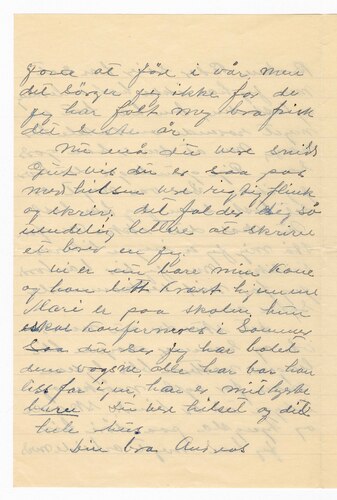 at føde i vår, men
det sørger jeg ikke for da
jeg har følt mig bra frisk
det siste år
Nu må du være snild
Gust vis du er saa pas
med hilsen vere rigtig flink
og skriv. det falder dig så
uendelig lettere at skrive
et brev en jeg.
vi er nu bare min Kone
og han litt Kvært hjemme
Mari er paa skolen, hun
skal Konfirmeres i Sommer
Saa du ser jeg har
dem vogsne alle har bar han
igjen, han er mit
buren Du vere hilset og dit
hele hus
Din bra Andreas